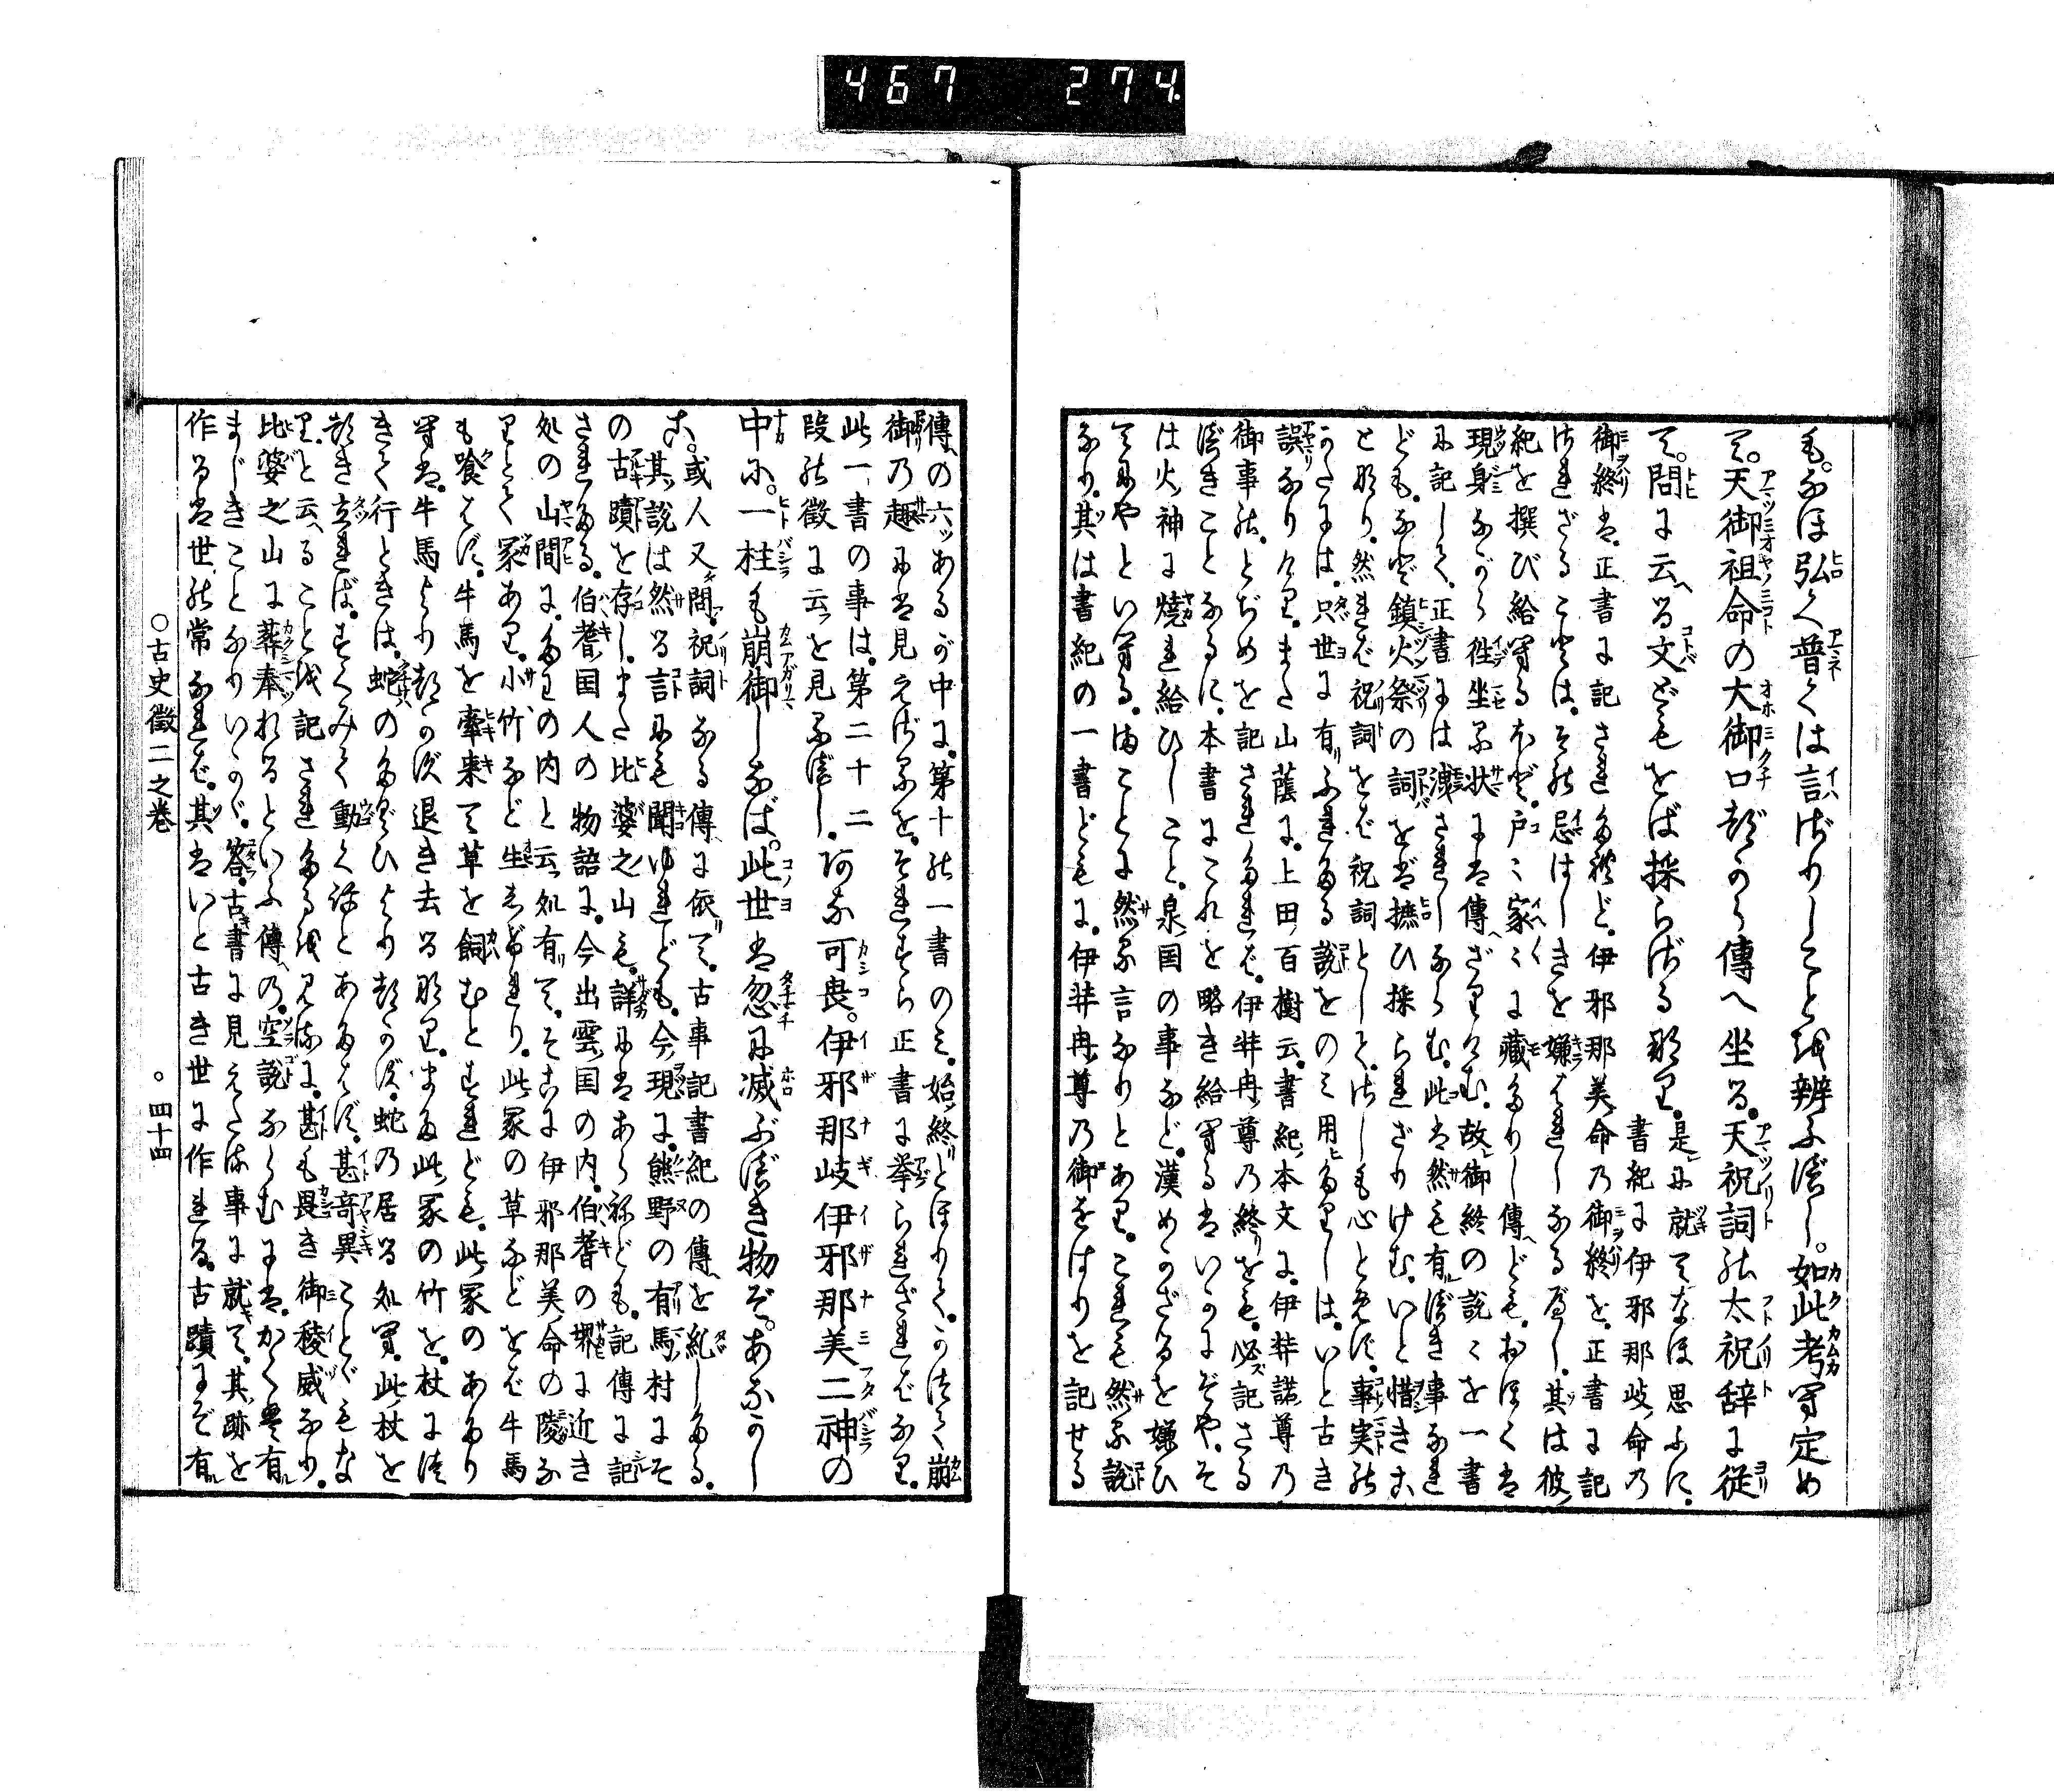 467 274
も。なほ弘く普くは言ざりしことを辨ふべし。如此考寄定め
て。天御祖命の大御口づから傳へ坐る。天祝詞の太祝辞に従
て。問に云へる文どもをば採らざるなり。是に就てなほ思ふに。
書紀に伊邪那岐命の
御終は。正書に記されたれど。伊邪那美命の御終を。正書に記
されざることは。その忌はしきを嫌はれしなるべし。其は彼
紀を撰び給へるほど。戸々家々に藏たりし傳ども。おほくは
現身ながら往坐る状には傳へざりけむ。故御終の説々を一書
に記して。正書には洩されしならむ。此は然も有べき事なれ
ども。なほ鎮火祭の詞をば摭ひ採られざりけむ。いと惜きわざ
となり。然れど祝詞をば祝詞として。さしも心とめず。事実の
かたには。只世に有ふれたる説をのみ用たりしは。いと古き
誤なりけり。また山蔭に。上田百樹云。書紀本文に。伊弉諾尊の
御事の。とぢめを記されたれば。伊弉冉尊の終りをも。必記さる
べきことなるに。本書にこれを略き給へるはいかにぞや。そ
は火神に燒れ給ひしこと。泉国の事など。漢めかざるを嫌ひ
てにやといへる。まことに然る言なりとあり。これも然る説
なり。其は書紀の一書どもに。伊弉冉尊の御をはりを記せる
傳の六ッあるが中に。第十の一書のみ。始終とほりて。かつて崩
御の趣には見えざるを。それすら正書に挙られざればなり。
此一書の事は。第二十二
段の徴に云を見るべし。阿な可畏。伊邪那岐伊邪那美二神の
中に。一柱も崩御しなば。此世は忽に滅ぶべき物ぞ。あなかし
こ。或人又問。祝詞なる傳に依て。古事記書紀の傳を糺したる。
其説は然る言にも聞ゆれども。今現に。熊野の有馬村にそ
の古蹟を存し。また比婆之山も。詳にはあらねども。記傳に記
されたる。伯耆国人の物語に。今出雲国の内。伯耆の堺に近き
処の山間に。たわの内と云処有て。そこに伊邪那美命の陵な
りとて冢あり。小竹など生しげれり。此冢の草などをば牛馬
も喰はず。牛馬を牽来て草を飼むとすれども。此冢のあたり
へは。牛馬より都かず退き去るなり。また此冢の竹を。杖につ
きて行ときは。蛇のたぐひより都かず。蛇の居る処へ。此杖を
都き立れば。すくみて動く得とあたはず。甚奇異ことどもな
り。と云ることを記されたるを見るに。甚も畏き御稜威なり。
比婆之山に葬奉れるといふ傳の。空説ならむには。かくは有
まじきことなりいかゞ。答。古書に見えたる事に就て。其跡を
作るは世の常なれど。其はいと古き世に作れる。古蹟にぞ有
○古史徴二之巻 ○四十四